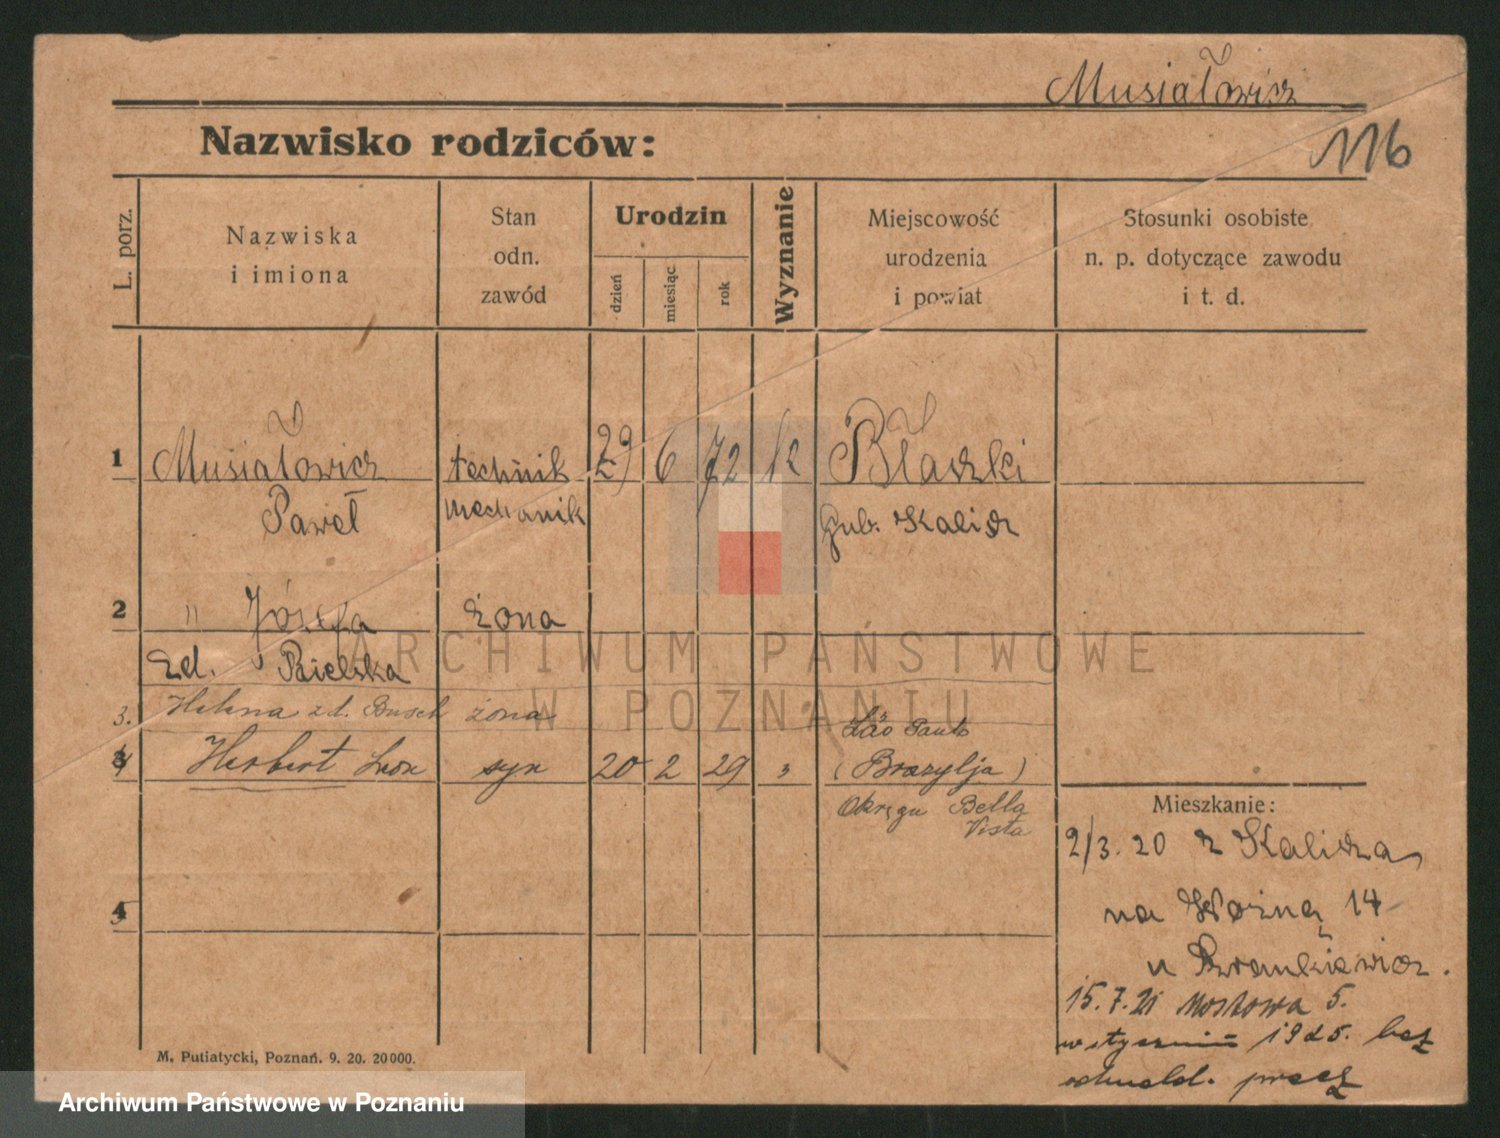 Musiałowicz
Nazwisko rodziców:
116
L. porz.
Nazwiska
i imiona
Stan
odn.
zawód
Urodzin
dzień
miesiąc
rok
Wyznanie
Miejscowość
urodzenia
i powiat
Stosunki osobiste
n. p. dotyczące zawodu
i t. d.
1 Musiałowicz technik 29 6 72 Błaszki
Paweł mechanik Gub. Kalisz
2 " Józefa żona
zd. Bielska
3. Helena zd. Busch żona
São Paulo
Herbert Leon syn 20 2 29 " (Brazylja)
Okręgu Bella
Vista
Mieszkanie:
2/3. 20 z Kalisza
na Woźną 14
u
15.7.21 Mostowa 5.
w styczniu 1925. bez
odmeld. precz
4
M. Putiatycki, Poznań. 9. 20. 20000.
ARCHIWUM PAŃSTWOWE
W POZNANIU
Archiwum Państwowe w Poznaniu